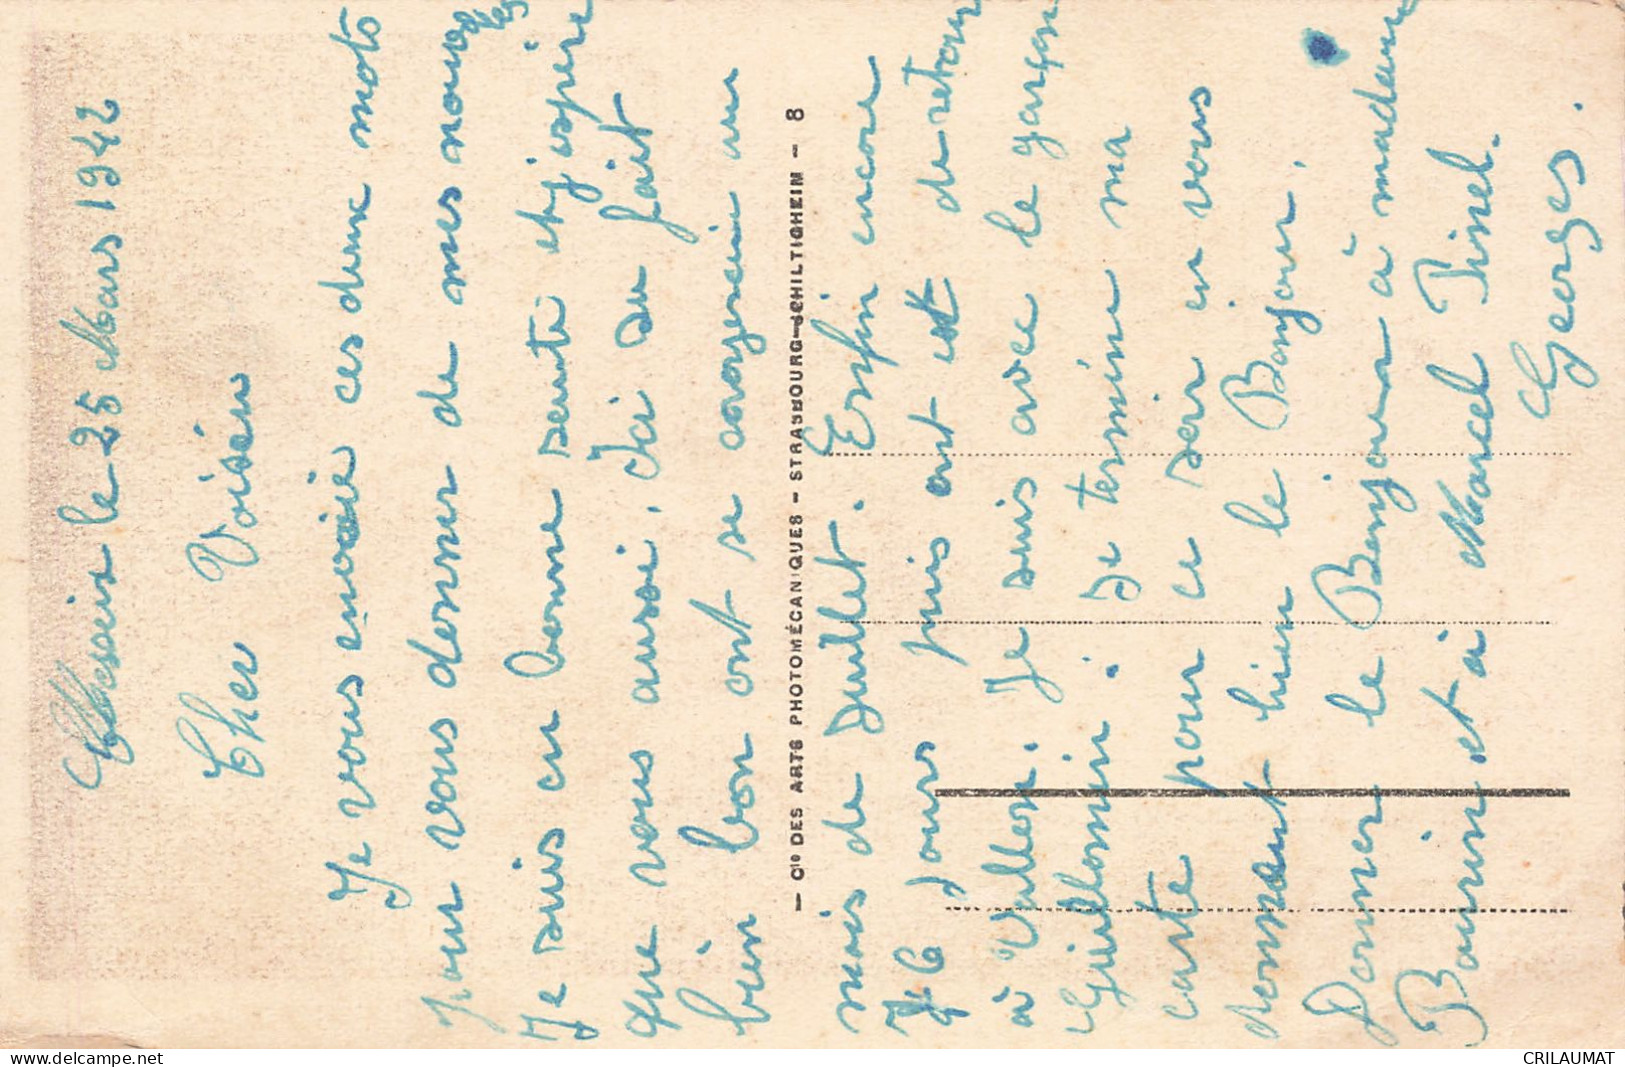 le 25 Mars 1942
Cher Voisin
Je vous envoie ces deux mots
pour vous donner de mes nouvelles
Je suis en bonne senté et j'espère
que vous aussi, Ici su fait
bien bon ont se croyerein au
— Cie DES ARTS PHOTOMÉCANIQUES — STRASBOURG-SCHILTIGHEIM — 8
mois de Juillet. Enfin encore
6 jours puis ont est de retour
à Vullon. Je suis avec le garçon
Guillomin. Je termine ma
carte pour ce soir en vous
donnant bien le Bonjour.
Donner le Bonjour à madame
Bourin et à Marcel Pinel.
Georges.
www.delcampe.net
CRILAUMAT